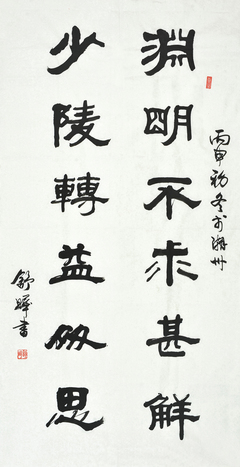 丙申初冬於湖州
淵明不求甚解
少陵轉益多思
舒書